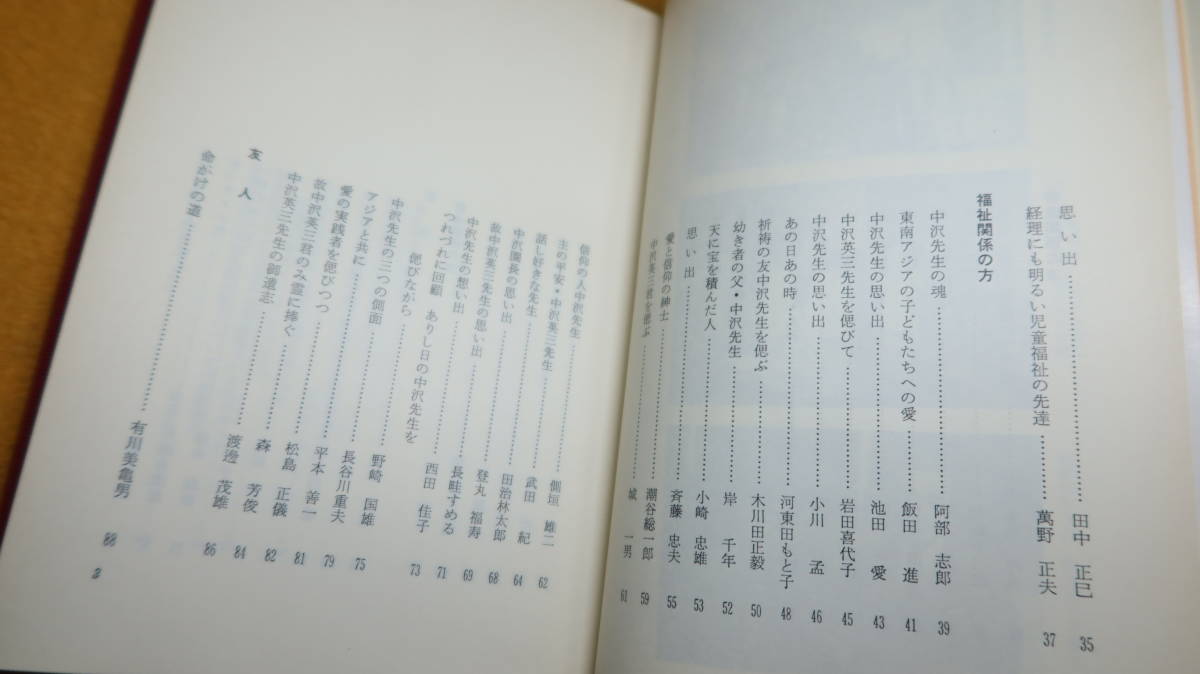 思い出……………………………田中　正巳　35
経理にも明るい児童福祉の先達………萬野　正夫　37
福祉関係の方
中沢先生の魂……………………阿部　志郎　39
東南アジアの子どもたちへの愛…………飯田　進　41
中沢先生の思い出………………池田　愛　43
中沢英三先生を偲びて……………岩田喜代子　45
中沢先生の思い出………………小川　孟　46
あの日あの時……………………河東田もと子　48
祈祷の友中沢先生を偲ぶ…………木川田正毅　50
幼き者の父・中沢先生……………岸　千年　52
天に宝を積んだ人………………小崎　忠雄　53
思い出……………………………斉藤　忠夫　55
愛と信仰の紳士…………………潮谷総一郎　59
中沢英三君を偲ぶ………………城　一男　61
信仰の人中沢先生………………側垣　雄二　62
主の平安・中沢英三先生…………武田　紀　64
話し好きな先生…………………田治林太郎　68
中沢園長の思い出………………登丸　福寿　69
故中沢英三先生の思い出…………長畦すめる　71
中沢先生の想い出………………西田　佳子　73
つれづれに回顧　ありし日の中沢先生を
偲びながら………………………野崎　国雄　75
中沢先生の三つの側面……………長谷川重夫　79
アジアと共に……………………平本　善一　81
愛の実践者を偲びつつ……………松島　正儀　82
故中沢英三君のみ霊に捧ぐ…………森　芳俊　84
中沢英三先生の御遺志……………渡邊　茂雄　86
友人
命がけの道………………………有川美亀男　88
3